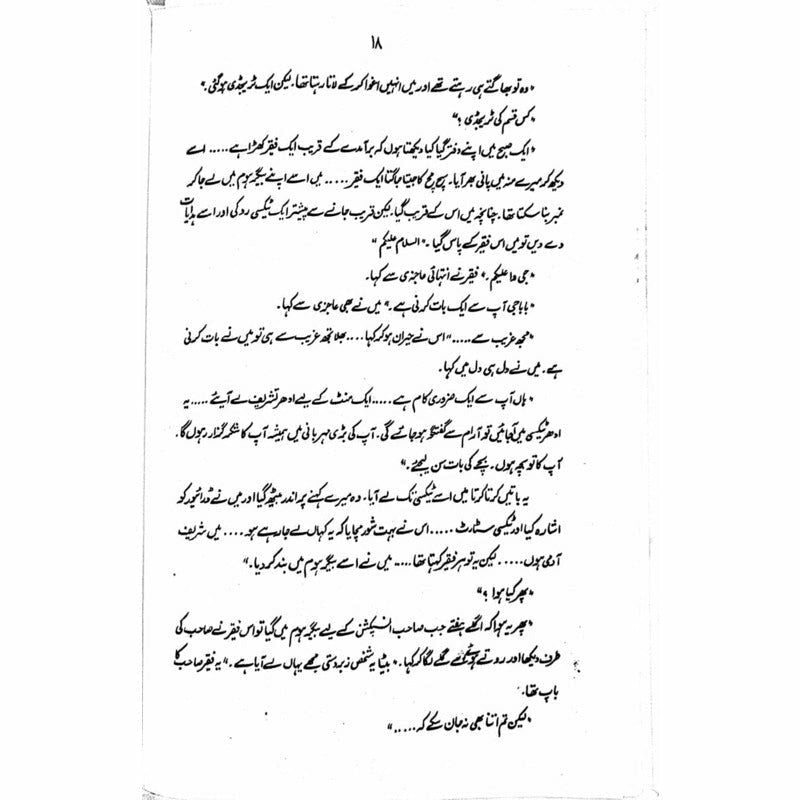 ۱۸
"وہ تو بھاگتے ہی رہتے تھے اور میں انہیں اغوا کر کے لاتا رہتا تھا۔ لیکن ایک ٹریجڈی ہو گئی۔"
"کس قسم کی ٹریجڈی ؟"
"ایک صبح میں اپنے دفتر گیا کیا دیکھتا ہوں کہ برآمدے کے قریب ایک فقیر کھڑا ہے ..... اسے
دیکھ کر میرے منہ میں پانی بھر آیا۔ سچ مچ کا جیتا جاگتا ایک فقیر ..... میں اسے اپنے بیگر ہوم میں لے جا کر
نمبر بنا سکتا تھا۔ چنانچہ میں اس کے قریب گیا۔ لیکن قریب جانے سے پیشتر ایک ٹیکسی روکی اور اسے ہدایات
دے دیں تو میں اس فقیر کے پاس گیا۔" السلام علیکم "
"جی وا علیکم۔" فقیر نے انتہائی عاجزی سے کہا۔
"بابا جی آپ سے ایک بات کرنی ہے۔" میں نے بھی عاجزی سے کہا۔
"مجھ غریب سے ....." اس نے حیران ہو کر کہا .... بھلا تجھ غریب سے ہی تو میں نے بات کرنی
ہے۔ میں نے دل ہی دل میں کہا۔
"ہاں آپ سے ایک ضروری کام ہے ..... ایک منٹ کے لیے ادھر تشریف لے آئیے ..... یہ
ادھر ٹیکسی میں آ جائیں تو آرام سے گفتگو ہو جائے گی۔ آپ کی بڑی مہربانی میں ہمیشہ آپ کا شکر گزار رہوں گا۔
آپ کا تو بچہ ہوں۔ بچے کی بات سن لیجئے۔"
یہ باتیں کرتا کرتا میں اسے ٹیکسی تک لے آیا۔ وہ میرے کہنے پر اندر بیٹھ گیا اور میں نے ڈرائیور کو
اشارہ کیا اور ٹیکسی سٹارٹ ..... اس نے بہت شور مچایا کہ یہ کہاں لے جا رہے ہو .... میں شریف
آدمی ہوں ..... لیکن یہ تو ہر فقیر کہتا تھا ..... میں نے اسے بیگر ہوم میں بند کر دیا۔"
"پھر کیا ہوا ؟"
"پھر یہ ہوا کہ اگلے ہفتے جب صاحب انسپکشن کے لیے بیگر ہوم میں گیا تو اس فقیر نے صاحب کی
طرف دیکھا اور روتے ہوئے گلے لگا کر کہا۔" بیٹا یہ شخص زبردستی مجھے یہاں لے آیا ہے۔" یہ فقیر صاحب کا
باپ تھا۔
"لیکن تم اتنا بھی نہ جان سکے کہ ....."